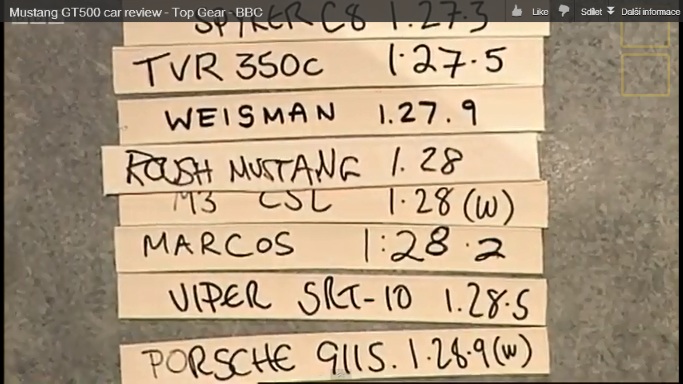 Mustang GT500 car review - Top Gear - BBC Like Sdílet Další informace
SPYKER C8 1.27.3
TVR 350C 1.27.5
WEISMAN 1.27.9
ROUSH MUSTANG 1.28
M3 CSL 1.28 (W)
MARCOS 1:28.2
VIPER SRT-10 1.28.5
PORSCHE 911S. 1.28.9(W)